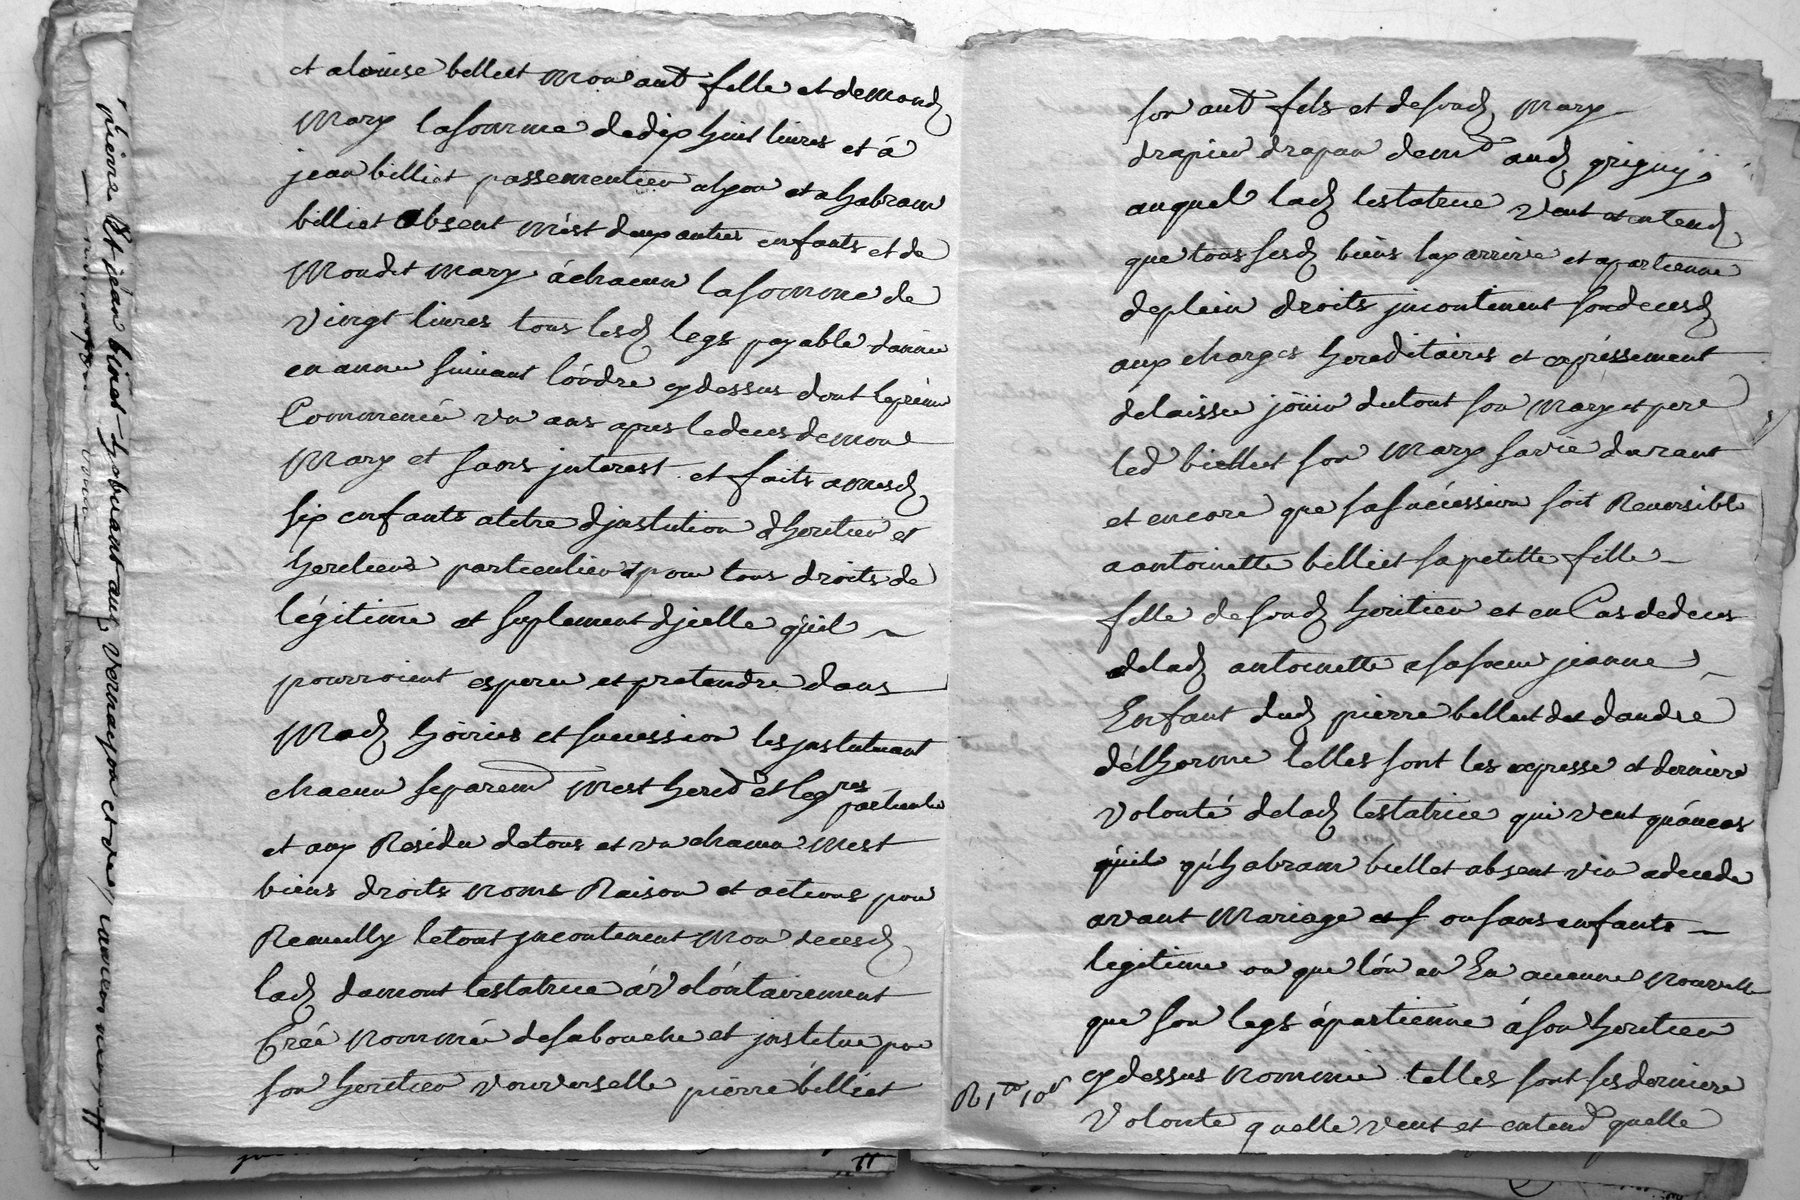 et alouise billiet mon aut fille et demond
Mary lasomme dedix huit livres et á
jean billiet passementier alyon et a habram
billiet absent mést deux autres enfants et de
Mondit Mary áchacun lasomme de
Vingt livres tous lesd legs payable dannee
en annee suivant lórdre cydessus dont lepremier
Commencera un ans apres ledeces demon
Mary et sans jnterest et faits amesd
six enfants atitre djnstitution dheritier et
heritiere particulier pour tous droits de
légitime et suplement djcelle quil
pourroient esperer et pretendre dans
Mad hoirie et succession les jnstituant
chacun separem mest hered et legres particulie
et aux Residu detous et un chacun mest
biens droits noms Raison et actions pour
Recueilly letout jncontinent mon decesd
lad damont testatrice á volóntairement
Créé nommé desabouche et jnstitue pour
son heritier vniverselle pierre billiet
son aut fils et desond Mary
drapier drapan demt aud grigny,
auquel lad testatrice veut et entend
que tous sesd biens luy arrive et apartienne
deplein droits jncontinent sondecesd
aux charges hereditaires et expréssement
delaisser jöuir dutout son Mary et pere
led billiet son Mary savie durant
et encore que sasuccéssion soit Reversible
a antoinette billiet sapetitte fille
fille desond heritier et en Cas dedeces
delad antoinette asasoeur jeanne
Enfant dud pierre billiet et dandre
délhorme telles sont les expresse et derniere
volonté delad testatrice qui veut quáucas
quil qu'habram billiet absent vin adecede
avant Mariage et f ou sans enfants
legitime ou que lón en Eu aucune nouvelle
que son legs ápartienne áson heritier
cydessus nommé telles sont ses derniere
Volonte quelle veut et entend quelle
R 1re 10e
pierre Et jean binet habitant aud Vernaison et